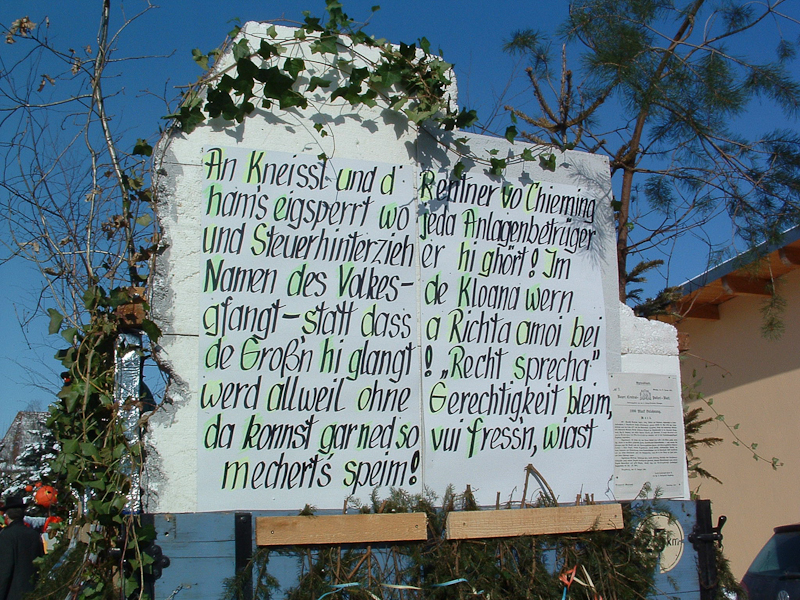 An Kneissl und d' Rentner vo Chieming
ham's eigsperrt wo jeda Anlagenbetrüger
und Steuerhinterzieher hi ghört! Im
Namen des Volkes - de Kloana wern
gfangt - statt dass a Richta amoi bei
de Groß'n hi glangt! „Recht sprecha"
werd allweil ohne Gerechtigkeit bleim,
da konnst gar ned so vui fress'n, wiast
mechert's speim!